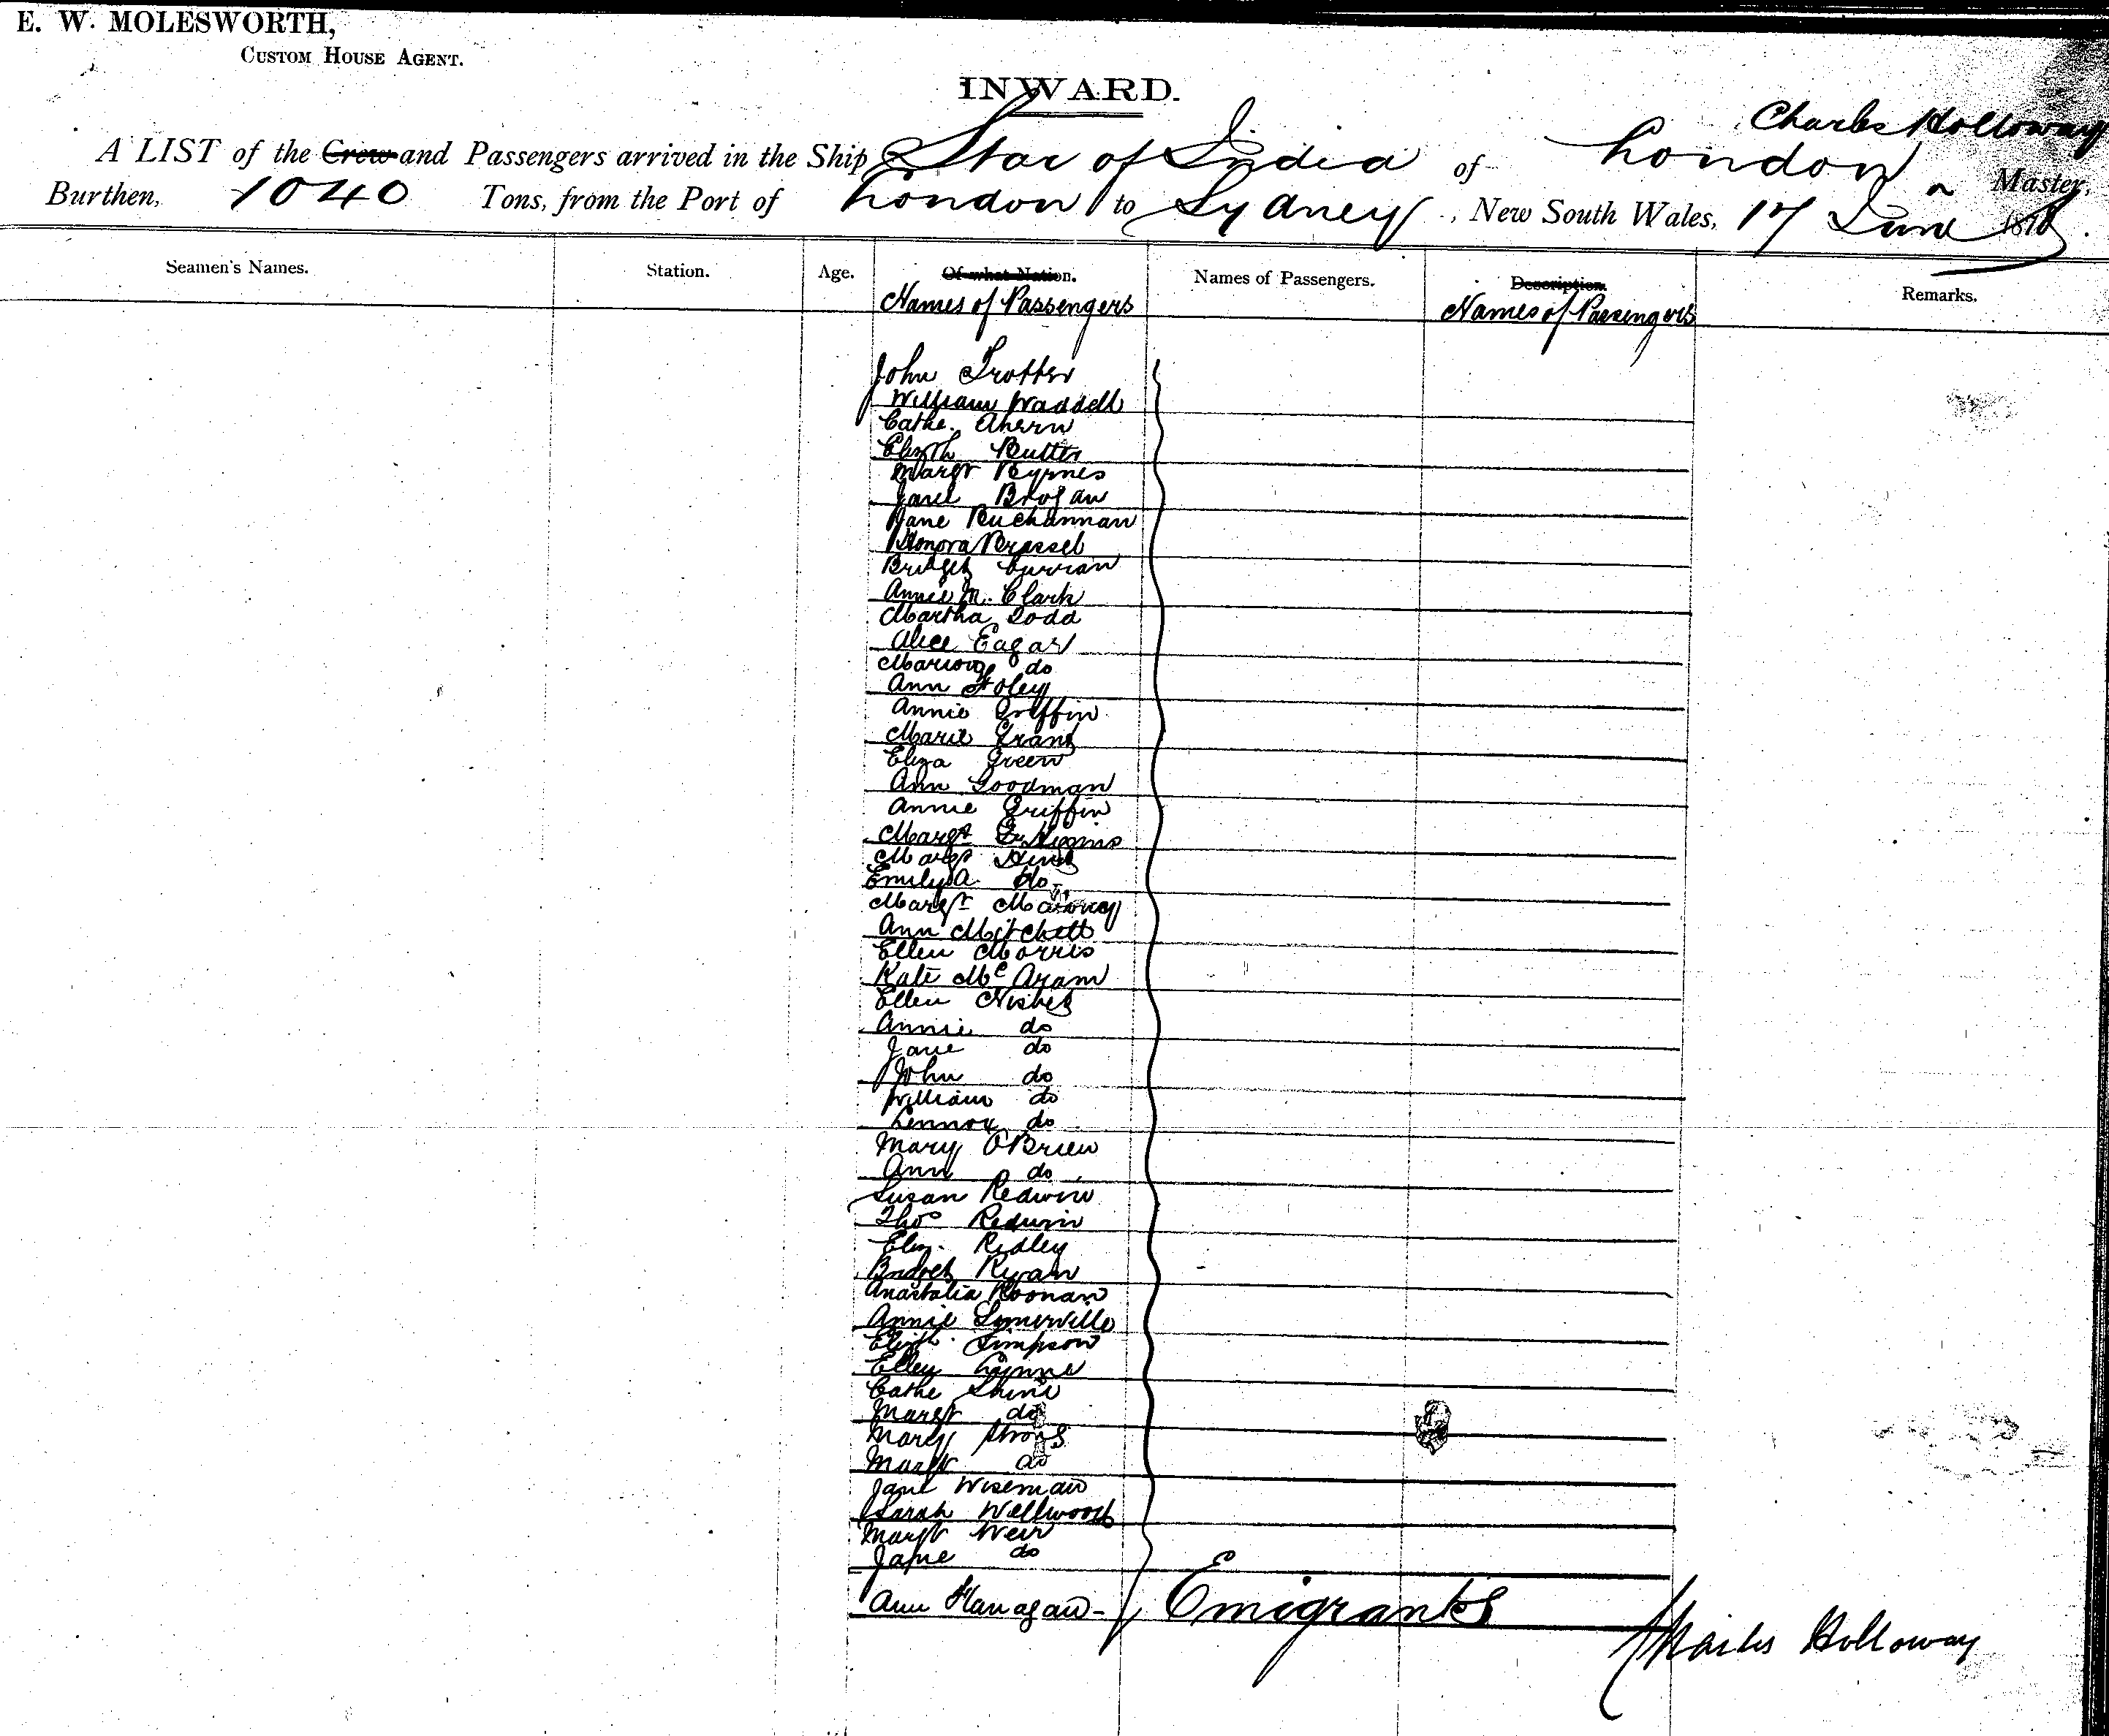 E. W. MOLESWORTH,
CUSTOM HOUSE AGENT.
INWARD.
Charles Holloway
A LIST of the Crew and Passengers arrived in the Ship Star of India of London Master,
Burthen, 1040 Tons, from the Port of London to Sydney, New South Wales, 17 June 187
Seamen's Names. Station. Age. Of what Nation. Names of Passengers. Description. Remarks.
Names of Passengers Names of Passengers
John Trotter
William Waddell
Cathe. Ahern
Elizth Butter
Margt Byrnes
Jane Brogan
Jane Buchannan
Honora Brassel
Bridget Curran
Annie M. Clark
Martha Dodd
Alice Eagar
do
Ann Foley
Annie Griffin
Marie Grant
Eliza Green
Ann Goodman
Annie Griffin
Margt
Margt
Emily A. do
Margt
Ann Mitchell
Ellen Morris
Kate Mc Aram
Ellen Nisbet
Annie do
Jane do
John do
William do
Lennox do
Mary O'Brien
Ann do
Susan Redwin
Thos Redwin
Eliz. Ridley
Bridget Ryan
Anastatia Noonan
Annie Somerville
Elizth. Simpson
Ellen Lynne
Cathe Shine
Margt do
Mary Strong
Margt do
Jane Wiseman
Sarah Wellwood
Margt Weir
Jane do
Ann Flanagan - Emigrants
Charles Holloway